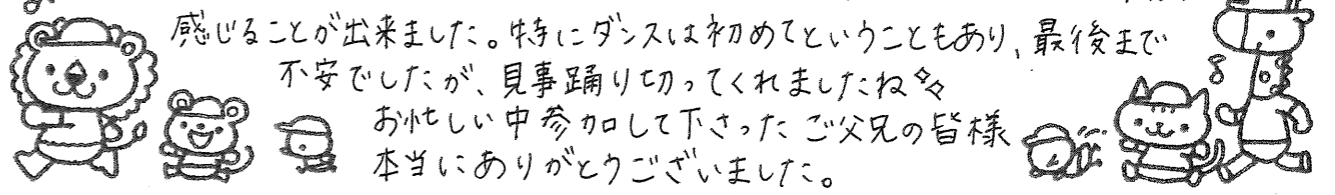 感じることが出来ました。特にダンスは初めてということもあり、最後まで
不安でしたが、見事踊り切ってくれましたね
お忙しい中参加して下さったご父兄の皆様
本当にありがとうございました。